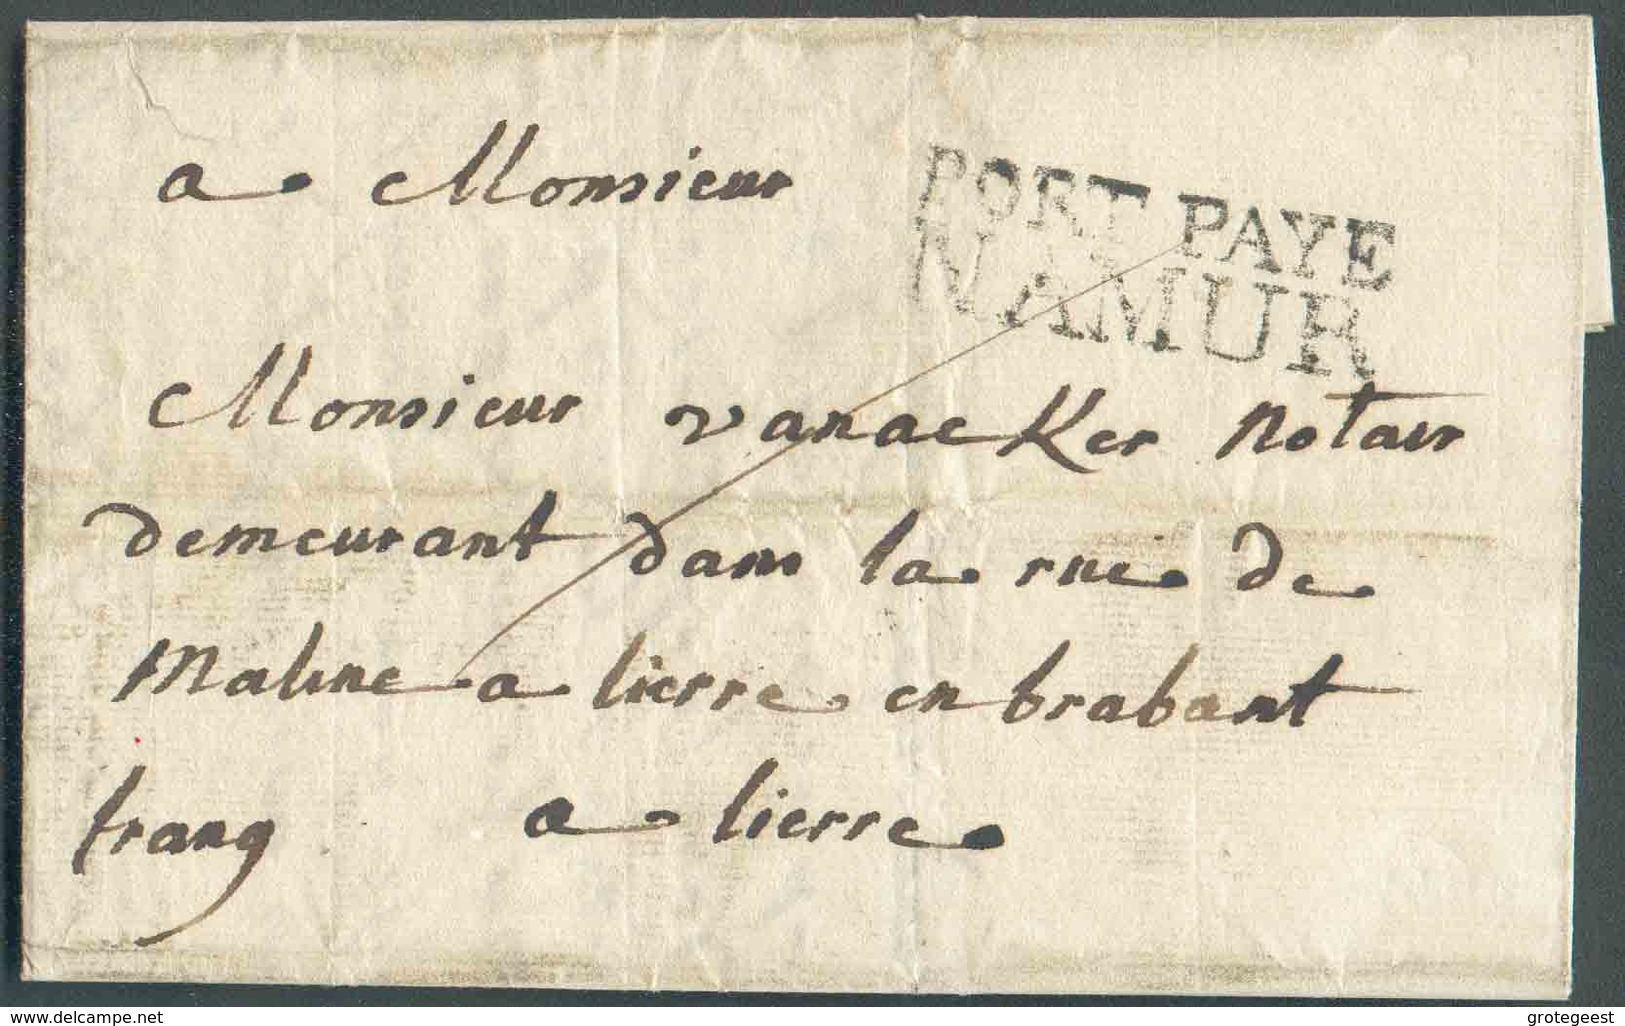 a Monsieur
PORT PAYE
NAMUR
Monsieur vanacKer notair
demeurant dans la rue de
Maline a lierre en brabant
franq a lierre
delcampe.net
grotegeest